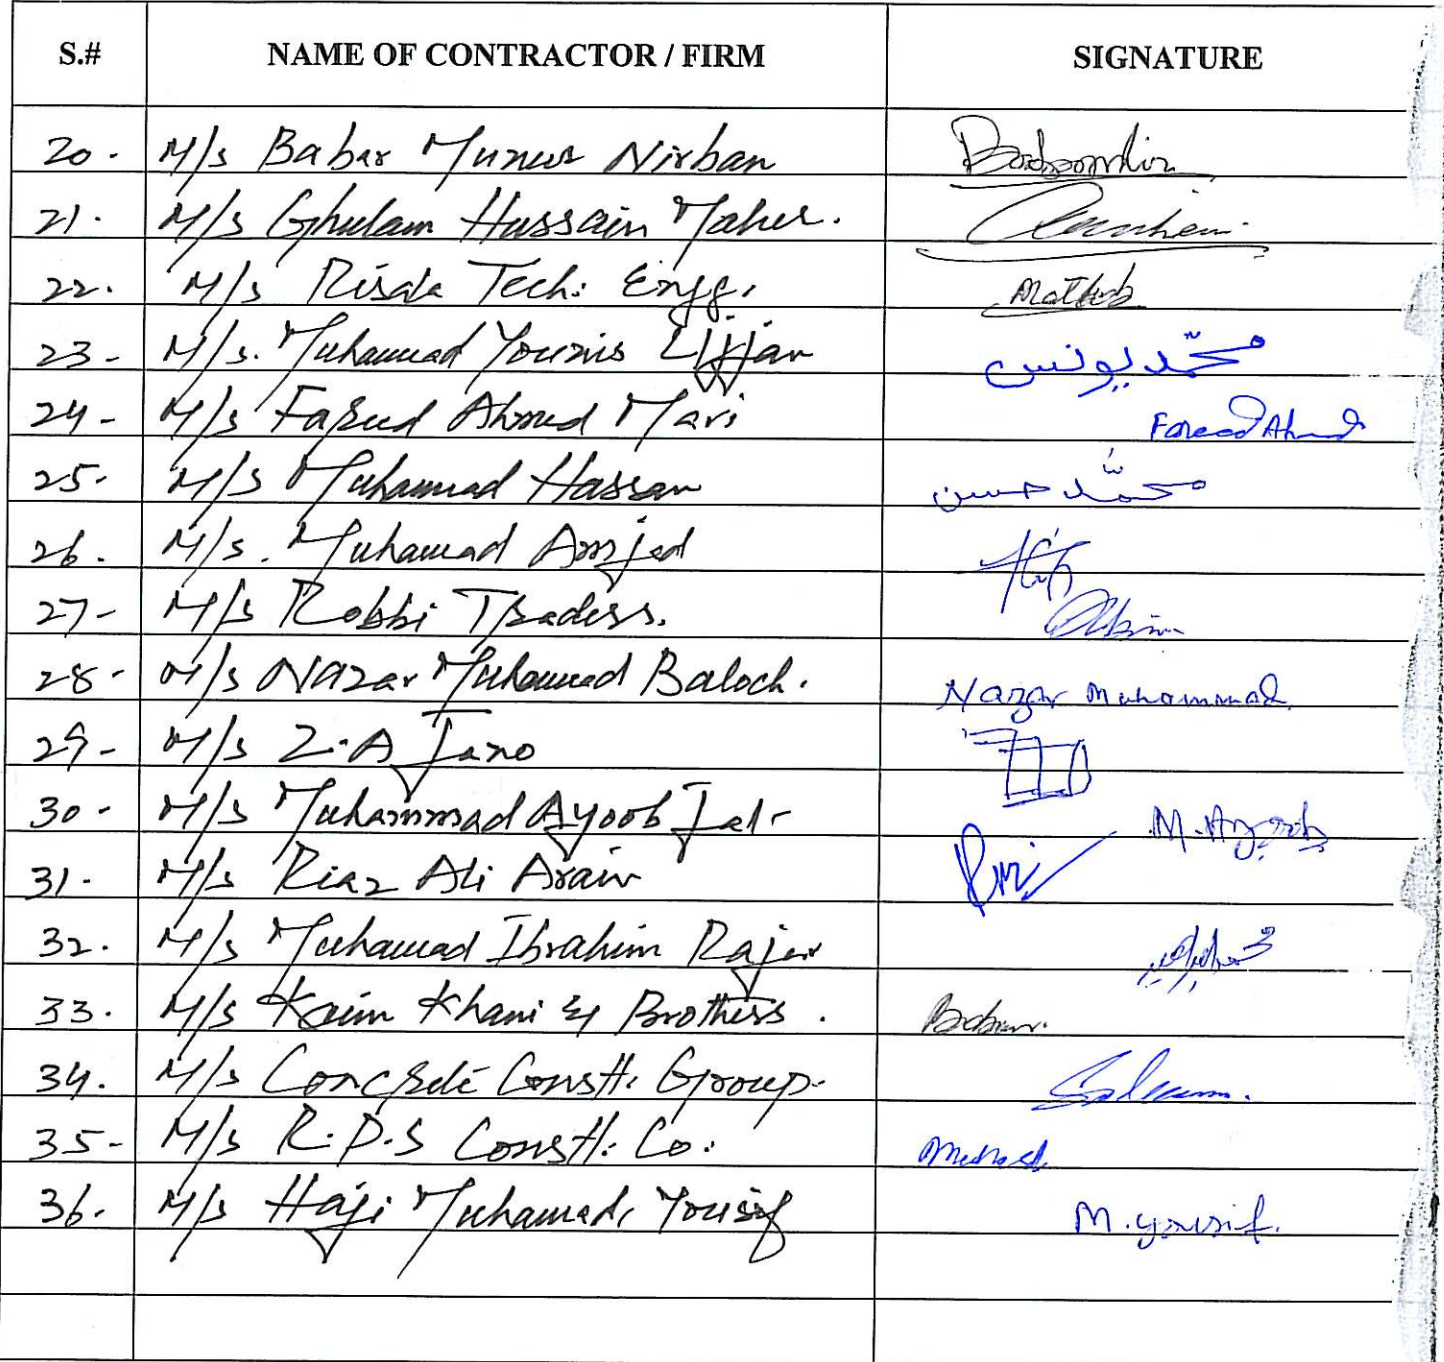 S.# NAME OF CONTRACTOR / FIRM SIGNATURE
20. M/s Babar Nirban
21. M/s Ghulam Hussain Maher.
22. M/s Risda Tech: Engg.
23- M/s. Muhammad Younis Lijjan محمّد یونس
24- M/s Fareed Ahmed Mari Fareed Ahmed
25. M/s Muhammad Hassan محمّد حسن
26. M/s. Muhammad Amjed
27- M/s Robbi Traders.
28- M/s Nazar Muhammad Baloch. Nazar Muhammad
29- M/s Z.A Jano
30- M/s Muhammad Ayoob M. Ayoob
31- M/s Riaz Ali Arain
32. M/s Muhammad Ibrahim Rajer محمد ابراہیم
33. M/s Kaim Khani & Brothers.
34. M/s Concrete Constt: Group.
35- M/s R.D.S Constt: Co:
36. M/s Haji Muhammad Yousif M. yousif.